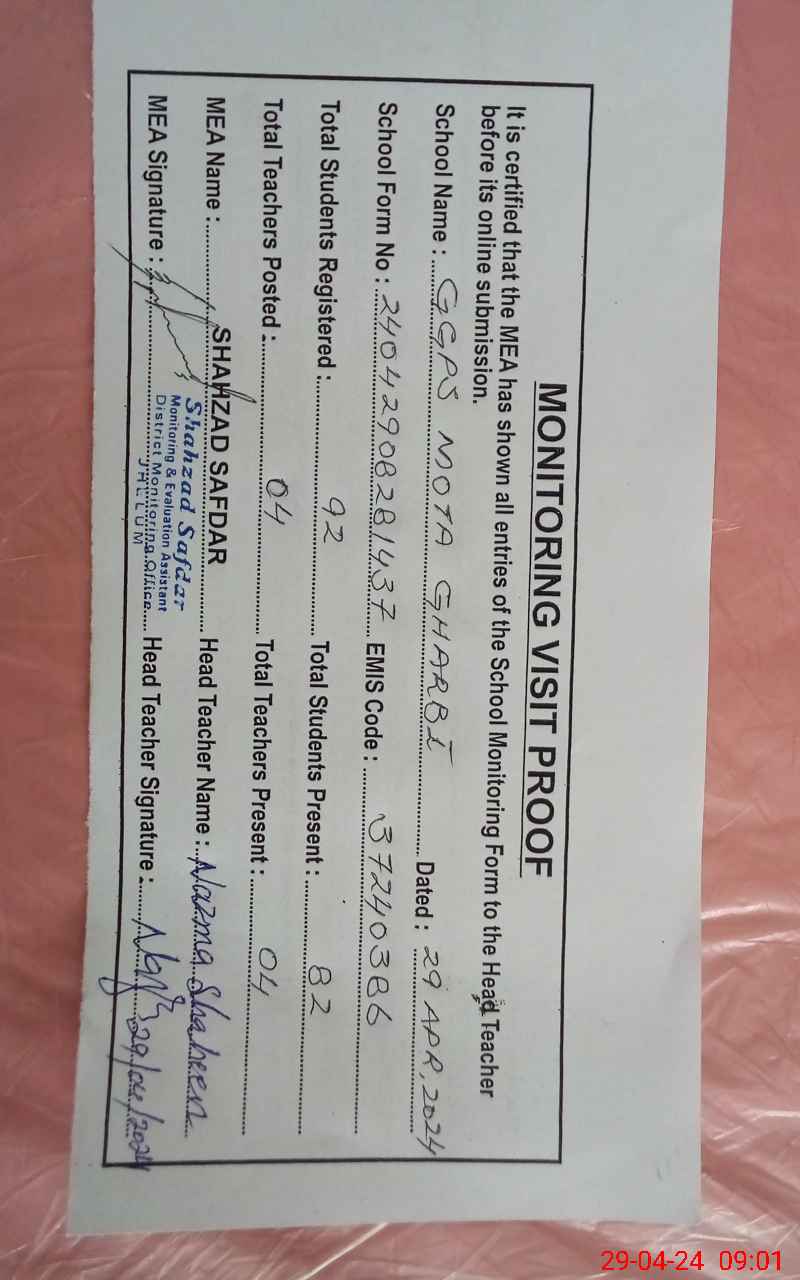 MONITORING VISIT PROOF
It is certified that the MEA has shown all entries of the School Monitoring Form to the Head Teacher
before its online submission.
School Name : GGPS MOTA GHARBI Dated : 29 APR, 2024
School Form No : 24042908281437 EMIS Code : 37240386
Total Students Registered : 92 Total Students Present : 82
Total Teachers Posted : 04 Total Teachers Present : 04
MEA Name : SHAHZAD SAFDAR Head Teacher Name : Nazma Shaheen
Shahzad Safdar
Monitoring & Evaluation Assistant
District Monitoring Office
JHELUM
MEA Signature : Head Teacher Signature : 29/04/2024
29-04-24 09:01